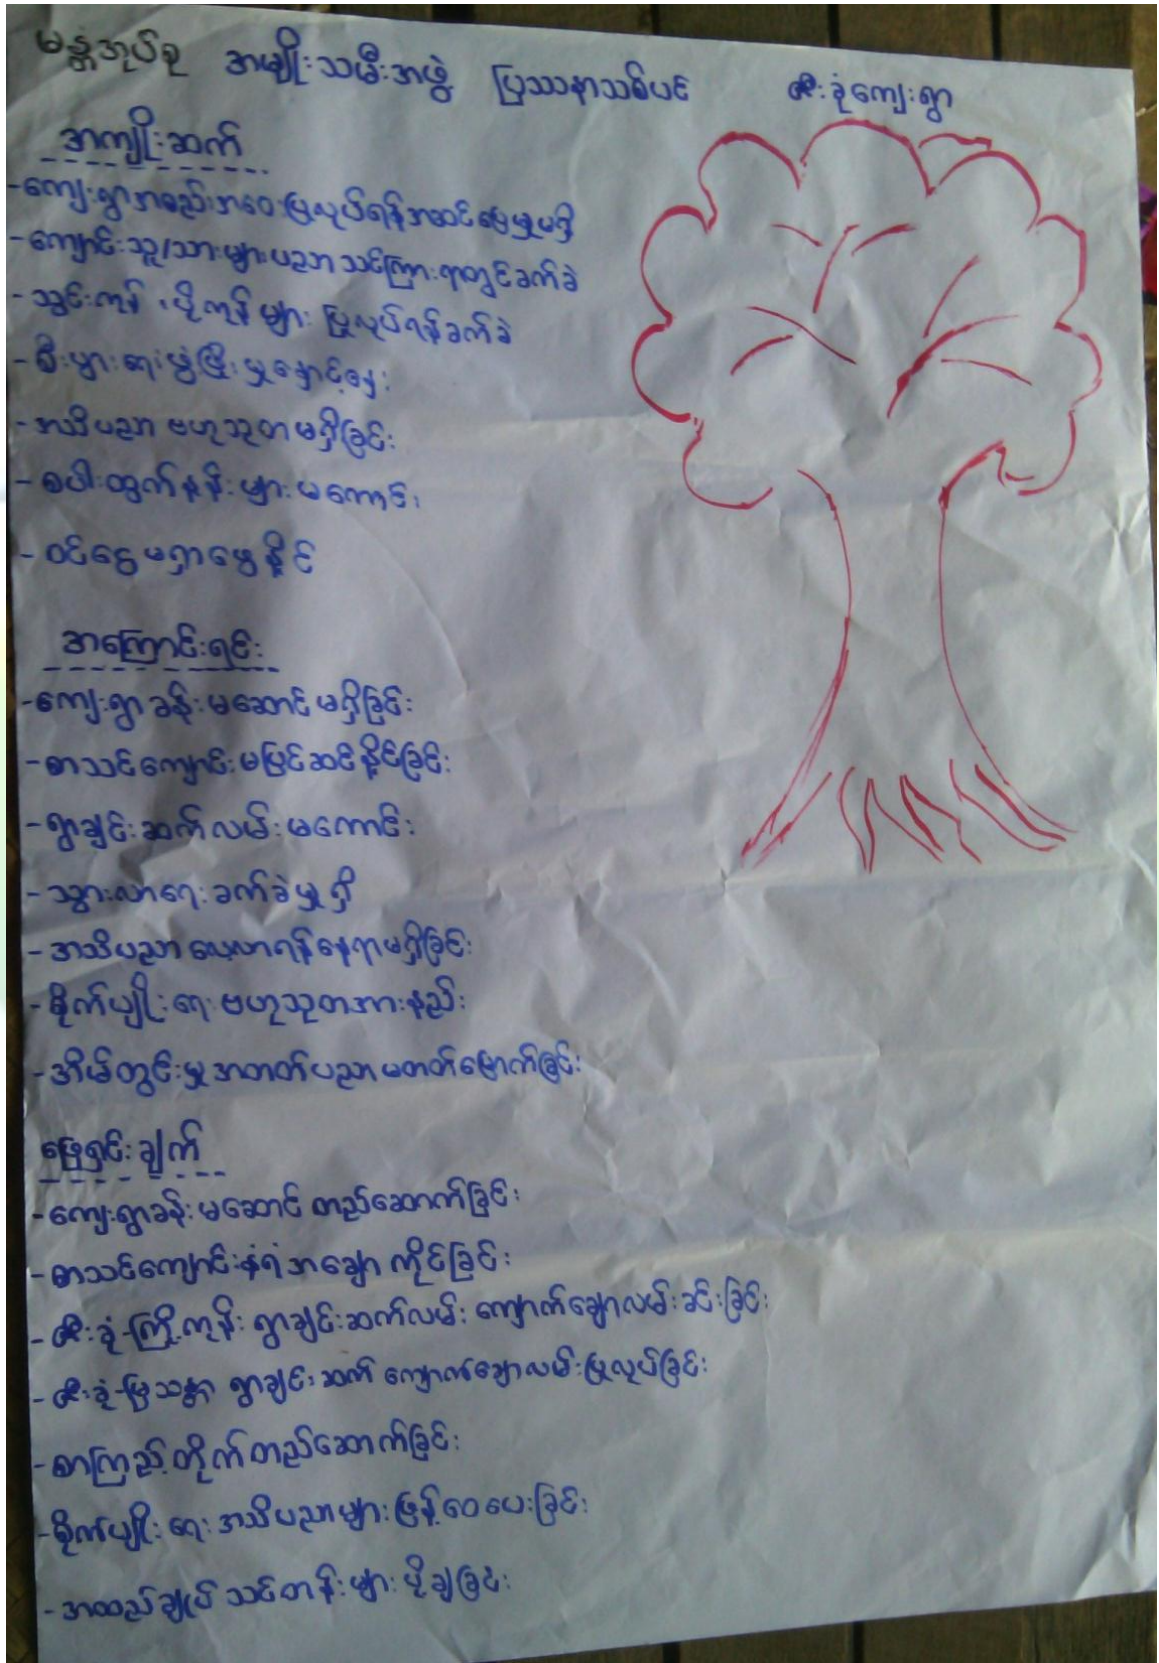 မန္တံအုပ်စု အမျိုးသမီးအဖွဲ့ ပြဿနာသစ်ပင် ဇီးခုံကျေးရွာ
အကျိုးဆက်
-ကျေးရွာအစည်းအဝေးပြုလုပ်ရန်အဆင်မပြေမှုမရှိ
-ကျောင်းသူ/သားများပညာသင်ကြားရာတွင်ခက်ခဲ
-သွင်းကုန်၊ပို့ကုန်များ ပြုလုပ်ရန်ခက်ခဲ
-စီးပွားရေးဖွံ့ဖြိုးမှုနှောင့်နှေး
-အသိပညာ ဗဟုသုတမရှိခြင်း
-စပါးထွက်နှုန်းများမကောင်း
-ဝင်ငွေမရှာဖွေနိုင်
အကြောင်းရင်း
-ကျေးရွာခန်းမဆောင်မရှိခြင်း
-စာသင်ကျောင်းမပြင်ဆင်နိုင်ခြင်း
-ရွာချင်းဆက်လမ်းမကောင်း
-သွားလာရေးခက်ခဲမှုရှိ
-အသိပညာလေ့လာရန်နေရာမရှိခြင်း
-စိုက်ပျိုးရေးဗဟုသုတအားနည်း
-အိမ်တွင်းမှုအတတ်ပညာမတတ်မြောက်ခြင်း
ဖြေရှင်းချက်
-ကျေးရွာခန်းမဆောင်တည်ဆောက်ခြင်း
-စာသင်ကျောင်းနံရံအချောကိုင်ခြင်း
-ဇီးခုံ-ကြို့ကုန်း ရွာချင်းဆက်လမ်း ကျောက်ချောလမ်းခင်းခြင်း
-ဇီးခုံ-မြသန္တာ ရွာချင်းဆက် ကျောက်ချောလမ်းပြုလုပ်ခြင်း
-စာကြည့်တိုက်တည်ဆောက်ခြင်း
-စိုက်ပျိုးရေးအသိပညာများဖြန့်ဝေပေးခြင်း
-အထည်ချုပ်သင်တန်းများပို့ချခြင်း